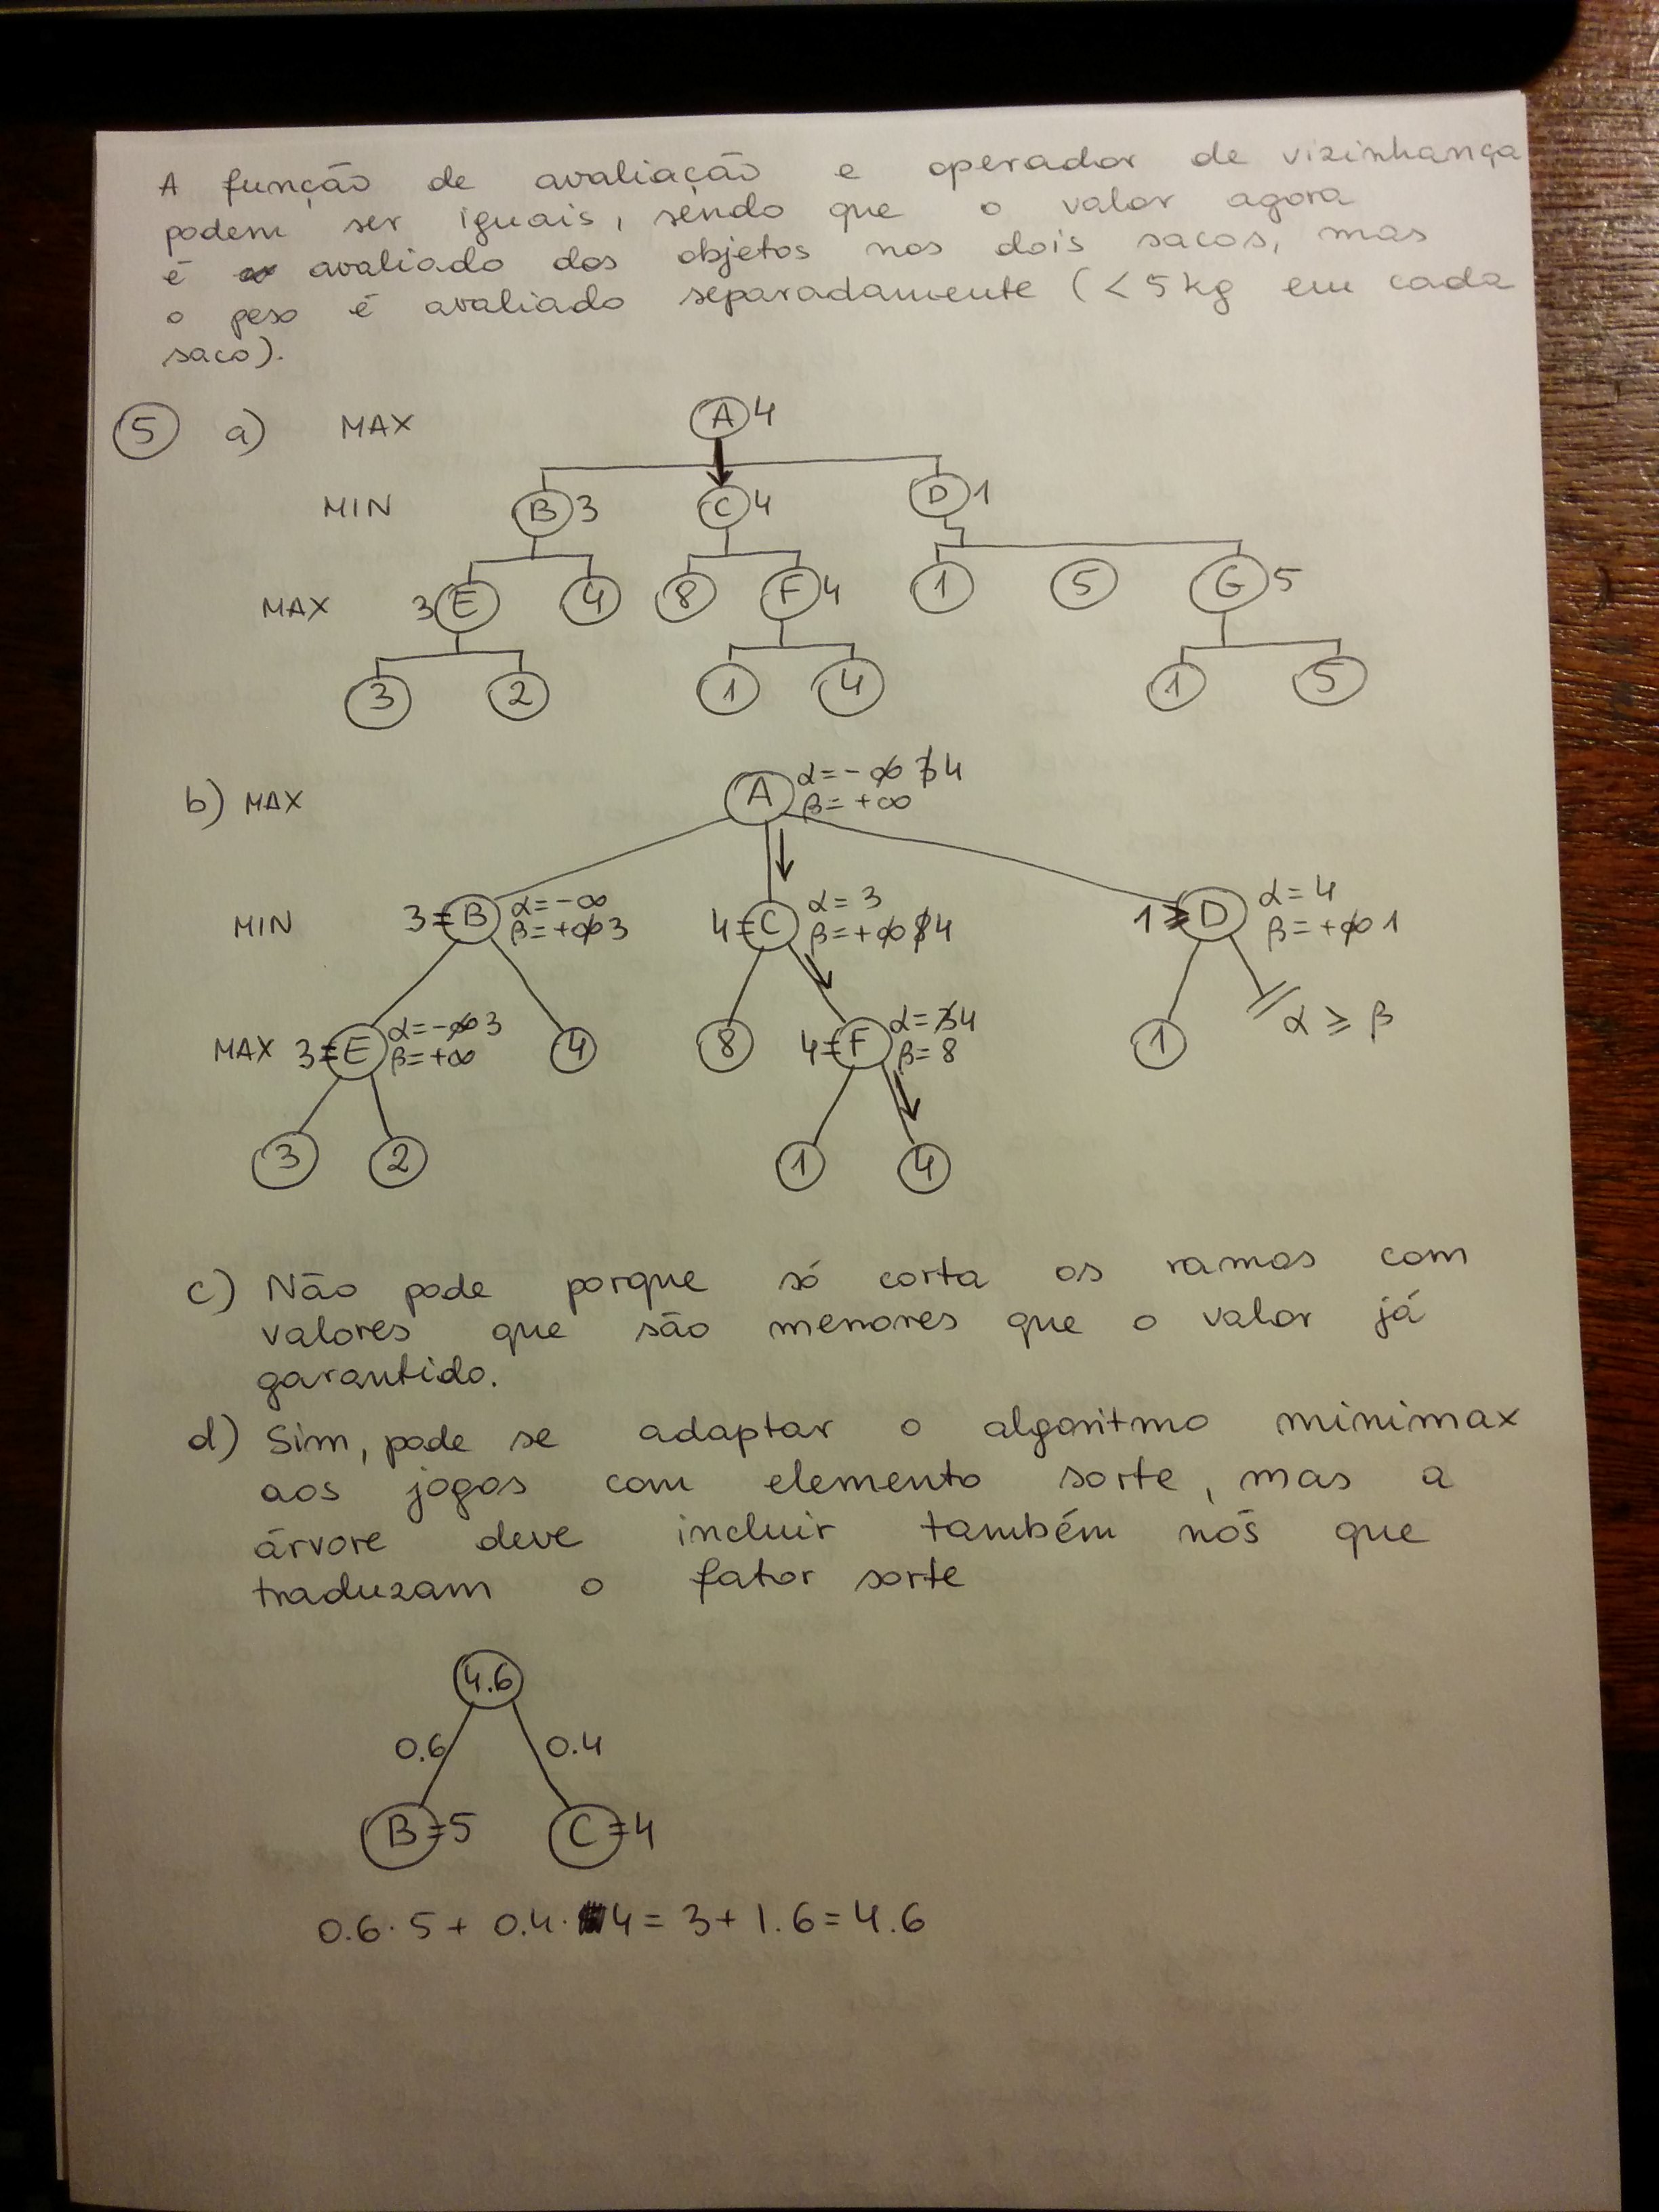 A função de avaliação e operador de vizinhança
podem ser iguais, sendo que o valor agora
é avaliado dos objetos nos dois sacos, mas
o peso é avaliado separadamente (<5kg em cada
saco).
5 a) MAX A 4
MIN B 3 C 4 D 1
MAX 3 E 4 8 F 4 1 5 G 5
3 2 1 4 1 5
b) MAX A α=-∞ 3 4
β=+∞
MIN 3=B α=-∞ 4=C α=3 1≥D α=4
β=+∞ 3 β=+∞ 8 4 β=+∞ 1
MAX 3=E α=-∞ 3 4 8 4=F α=3 4 1 α ≥ β
β=+∞ β=8
3 2 1 4
c) Não pode porque só corta os ramos com
valores que são menores que o valor já
garantido.
d) Sim, pode se adaptar o algoritmo minimax
aos jogos com elemento sorte, mas a
árvore deve incluir também nós que
traduzam o fator sorte
4.6
0.6 0.4
B=5 C=4
0.6·5+ 0.4·4=3+1.6=4.6